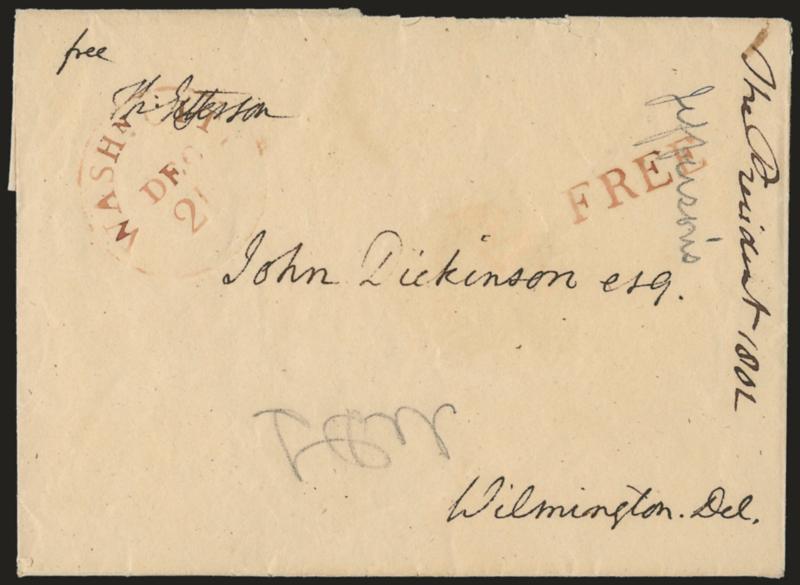 free
Th: Jefferson
WASHN CITY
DEC
2
FREE
John Dickinson esq.
Wilmington. Del.
The President 1802
Jefferson's